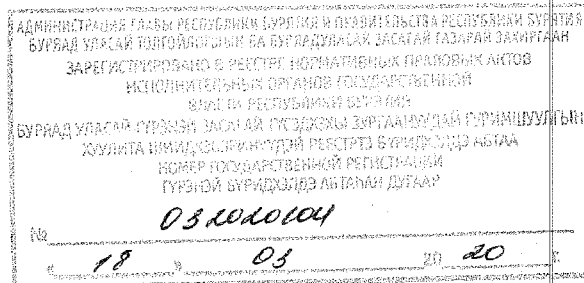 АДМИНИСТРАЦИЯ ГЛАВЫ РЕСПУБЛИКИ БУРЯТИЯ И ПРАВИТЕЛЬСТВА РЕСПУБЛИКИ БУРЯТИЯ
БУРЯАД УЛАСАЙ ТОЛГОЙЛОГШЫН БА БУРЯАД УЛАСАЙ ЗАСАГАЙ ГАЗАРАЙ ЗАХИРГААН
ЗАРЕГИСТРИРОВАНО В РЕЕСТРЕ НОРМАТИВНЫХ ПРАВОВЫХ АКТОВ
ИСПОЛНИТЕЛЬНЫХ ОРГАНОВ ГОСУДАРСТВЕННОЙ
ВЛАСТИ РЕСПУБЛИКИ БУРЯТИЯ
БУРЯАД УЛАСАЙ ГҮРЭНЭЙ ЗАСАГАЙ
АБТАА
НОМЕР ГОСУДАРСТВЕННОЙ РЕГИСТРАЦИИ
ГҮРЭНЭЙ БҮРИДХЭЛДЭ АБТАҺАН ДУГААР
№ 032020104
« 18 » 03 20 20 г.